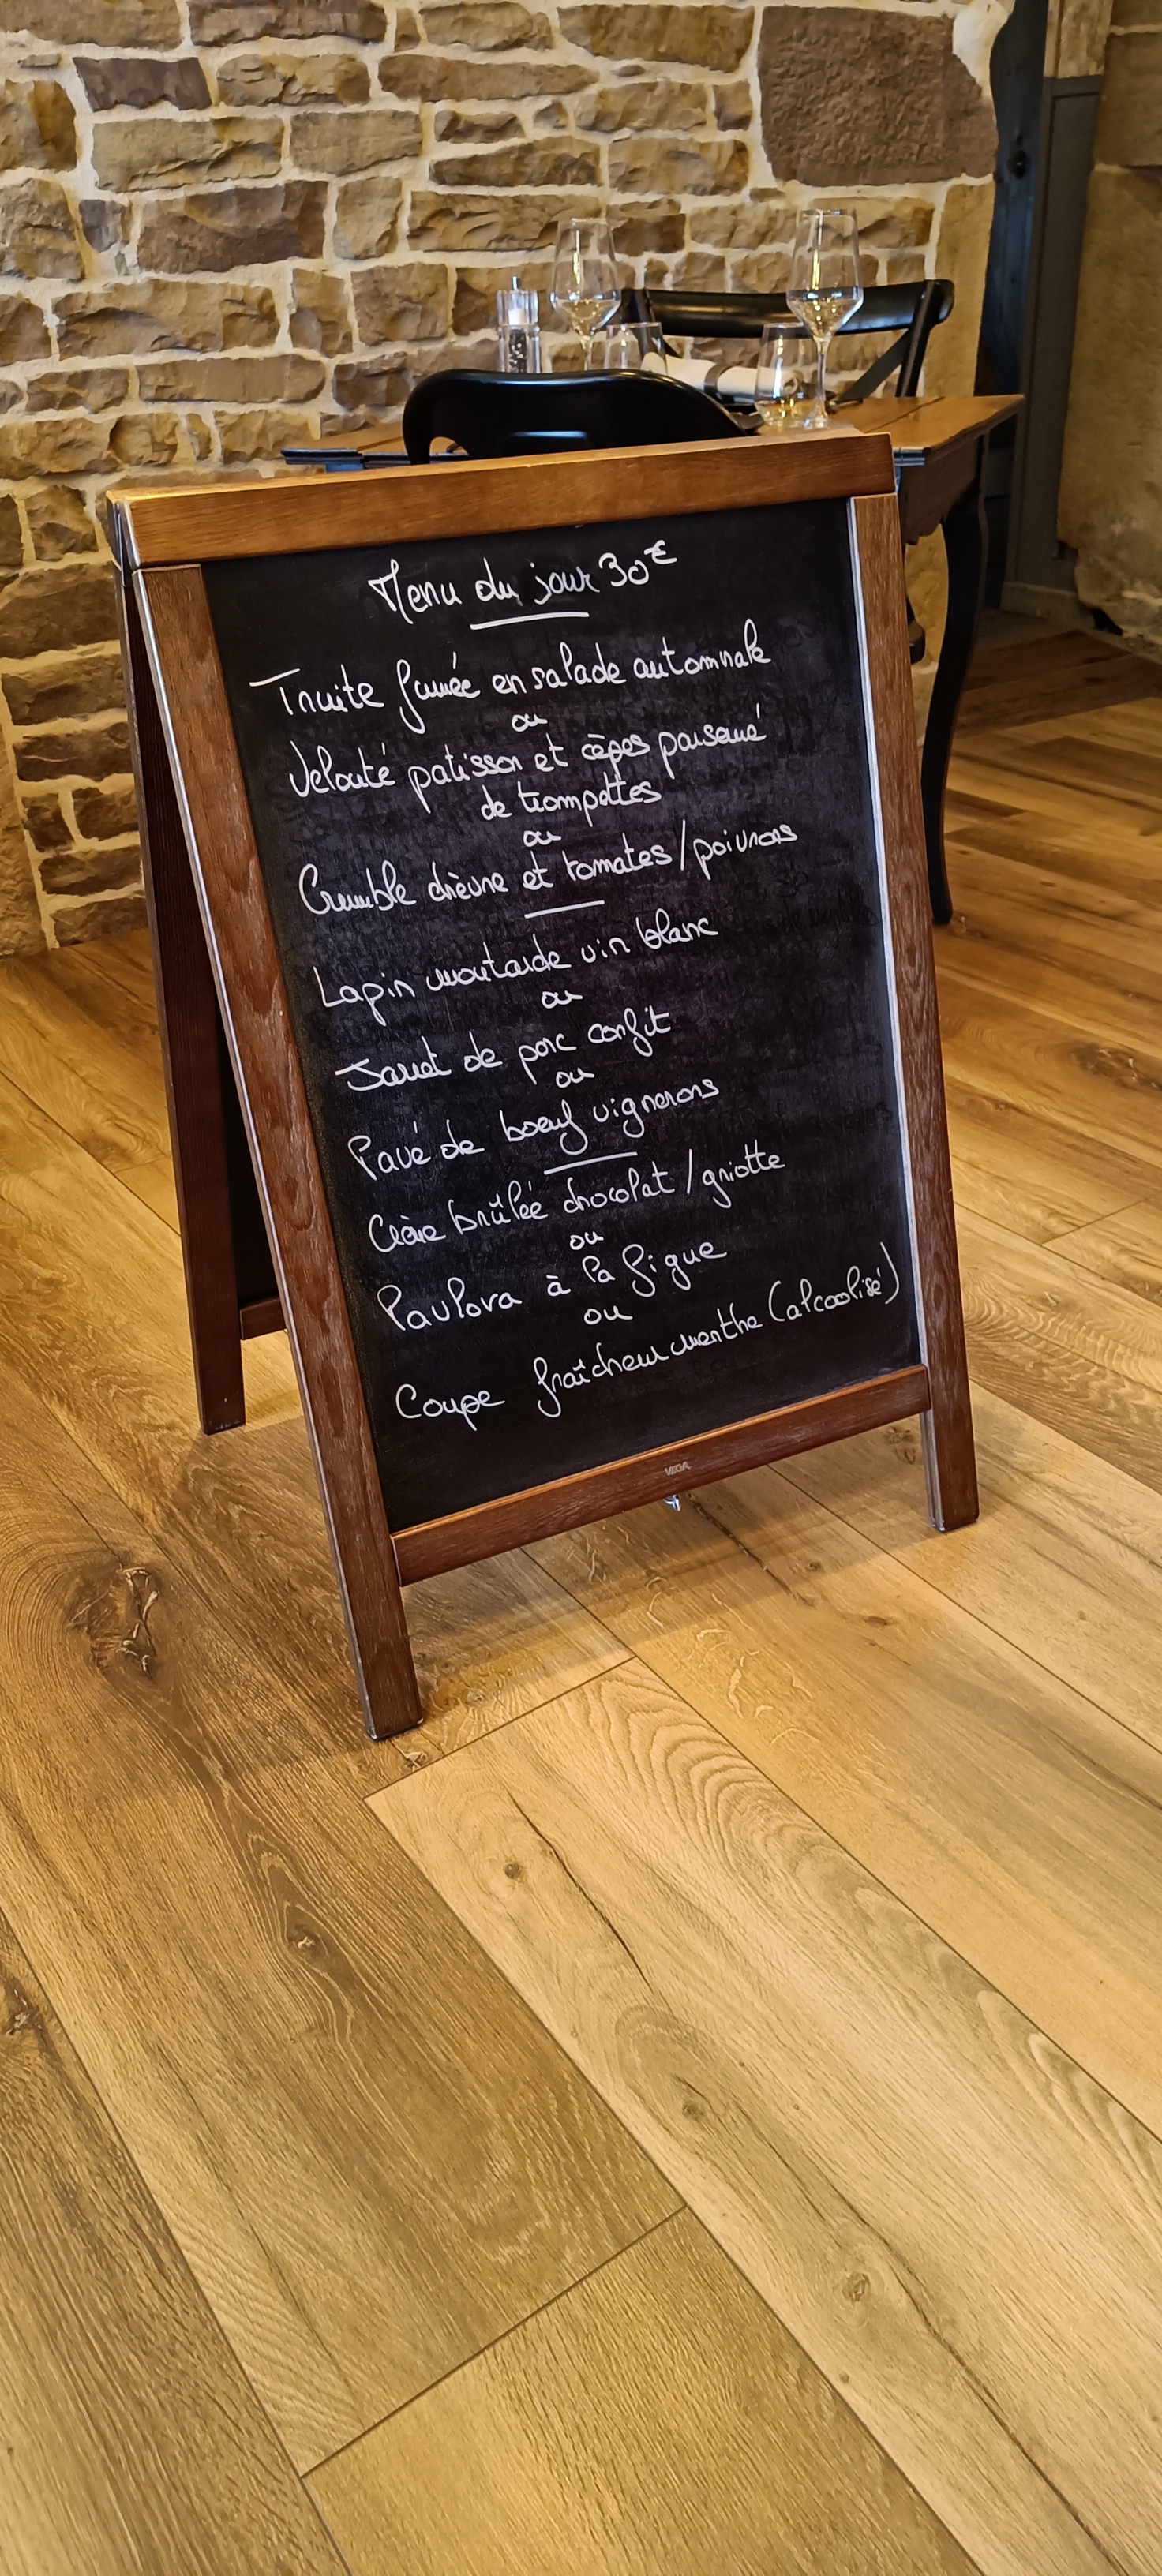 Menu du jour 30€
Truite fumée en salade automnale
ou
Velouté patisson et cèpes parsemé
de trompettes
ou
Crumble chèvre et tomates/poivrons
Lapin moutarde vin blanc
ou
Jarret de porc confit
ou
Pavé de boeuf vignerons
Crème brûlée chocolat/griotte
ou
Pavlova à la figue
ou
Coupe fraîcheur menthe (alcoolisé)
VEGA